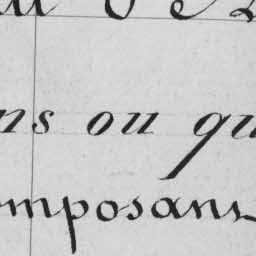 ns ou qu
mposans